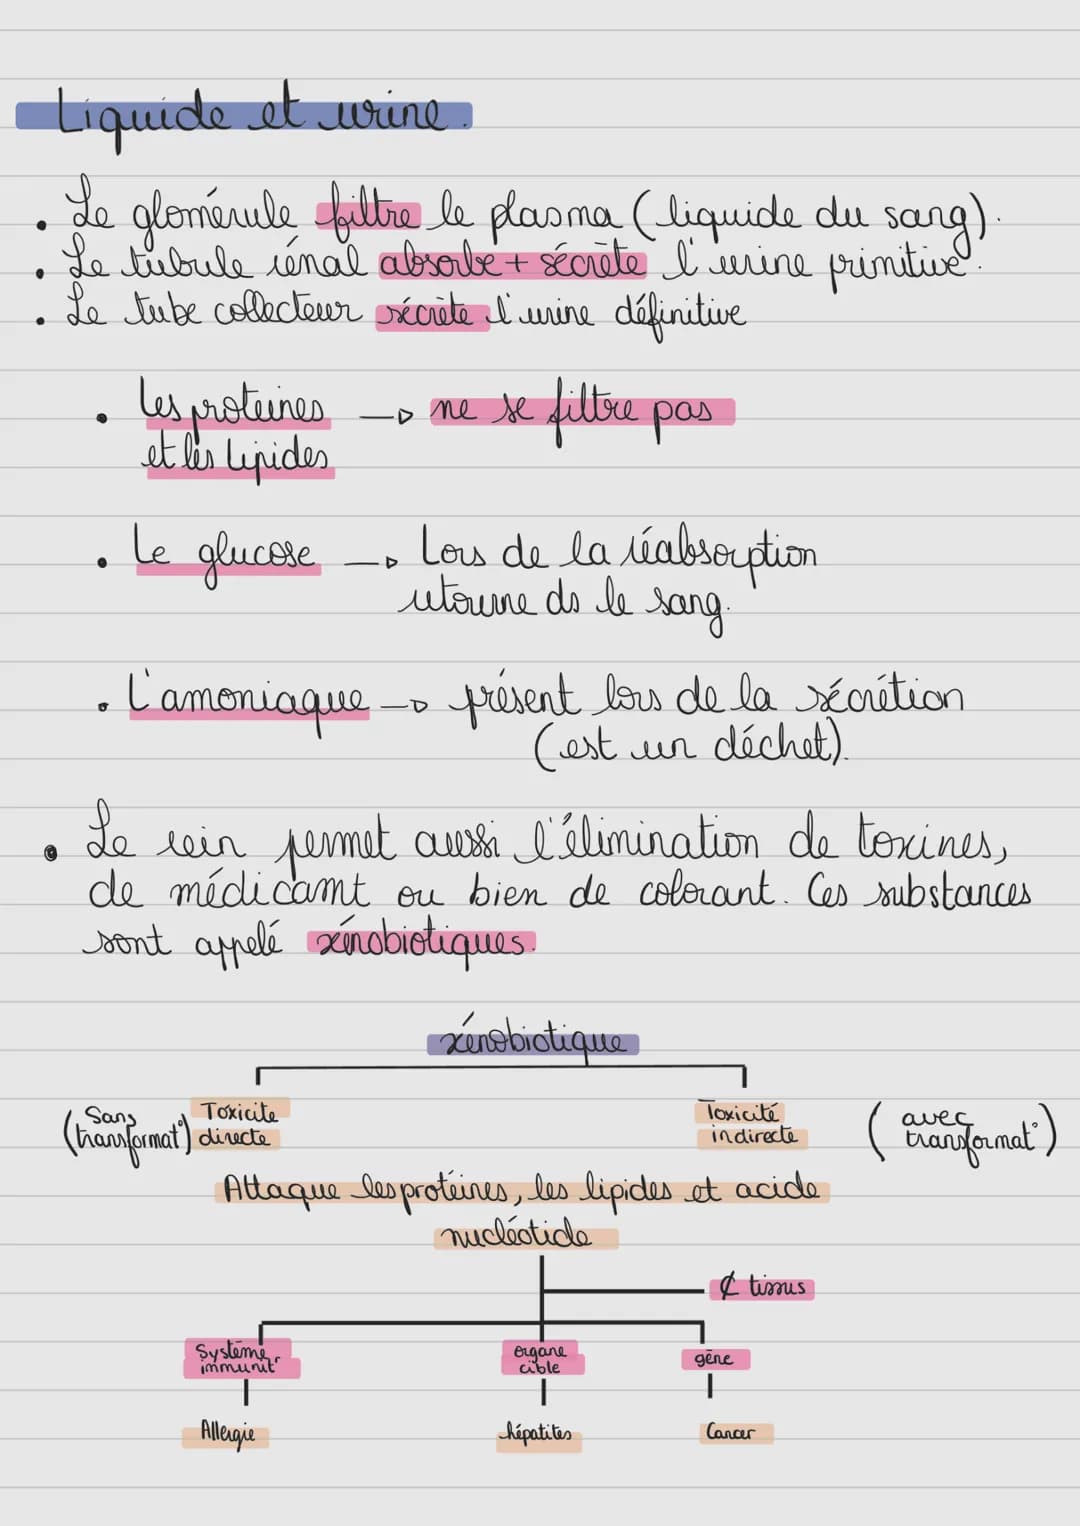 Liquide et urine.
• Le glomérule filtre le plasma (liquide du sang).
• Le tubule rénal absorbe + sécrète l'urine primitive.
• Le tube collecteur sécrète l'urine définitive
• Les proteines —> ne se filtre pas
et les Lipides
• Le glucose —> Lors de la réabsorption
retourne ds le sang.
• L'amoniaque —> présent lors de la sécrétion
(est un déchet).
• Le rein permet aussi l'élimination de toxines,
de médicamt ou bien de colorant. Ces substances
sont appelé xénobiotiques.
xénobiotique
(Sans transformat°) Toxicite directe
Toxicité indirecte (avec transformat°)
Attaque les protéines, les lipides et acide
nucléotide
₵ tissus
Système immunit organe cible gène
Allergie hépatites Cancer